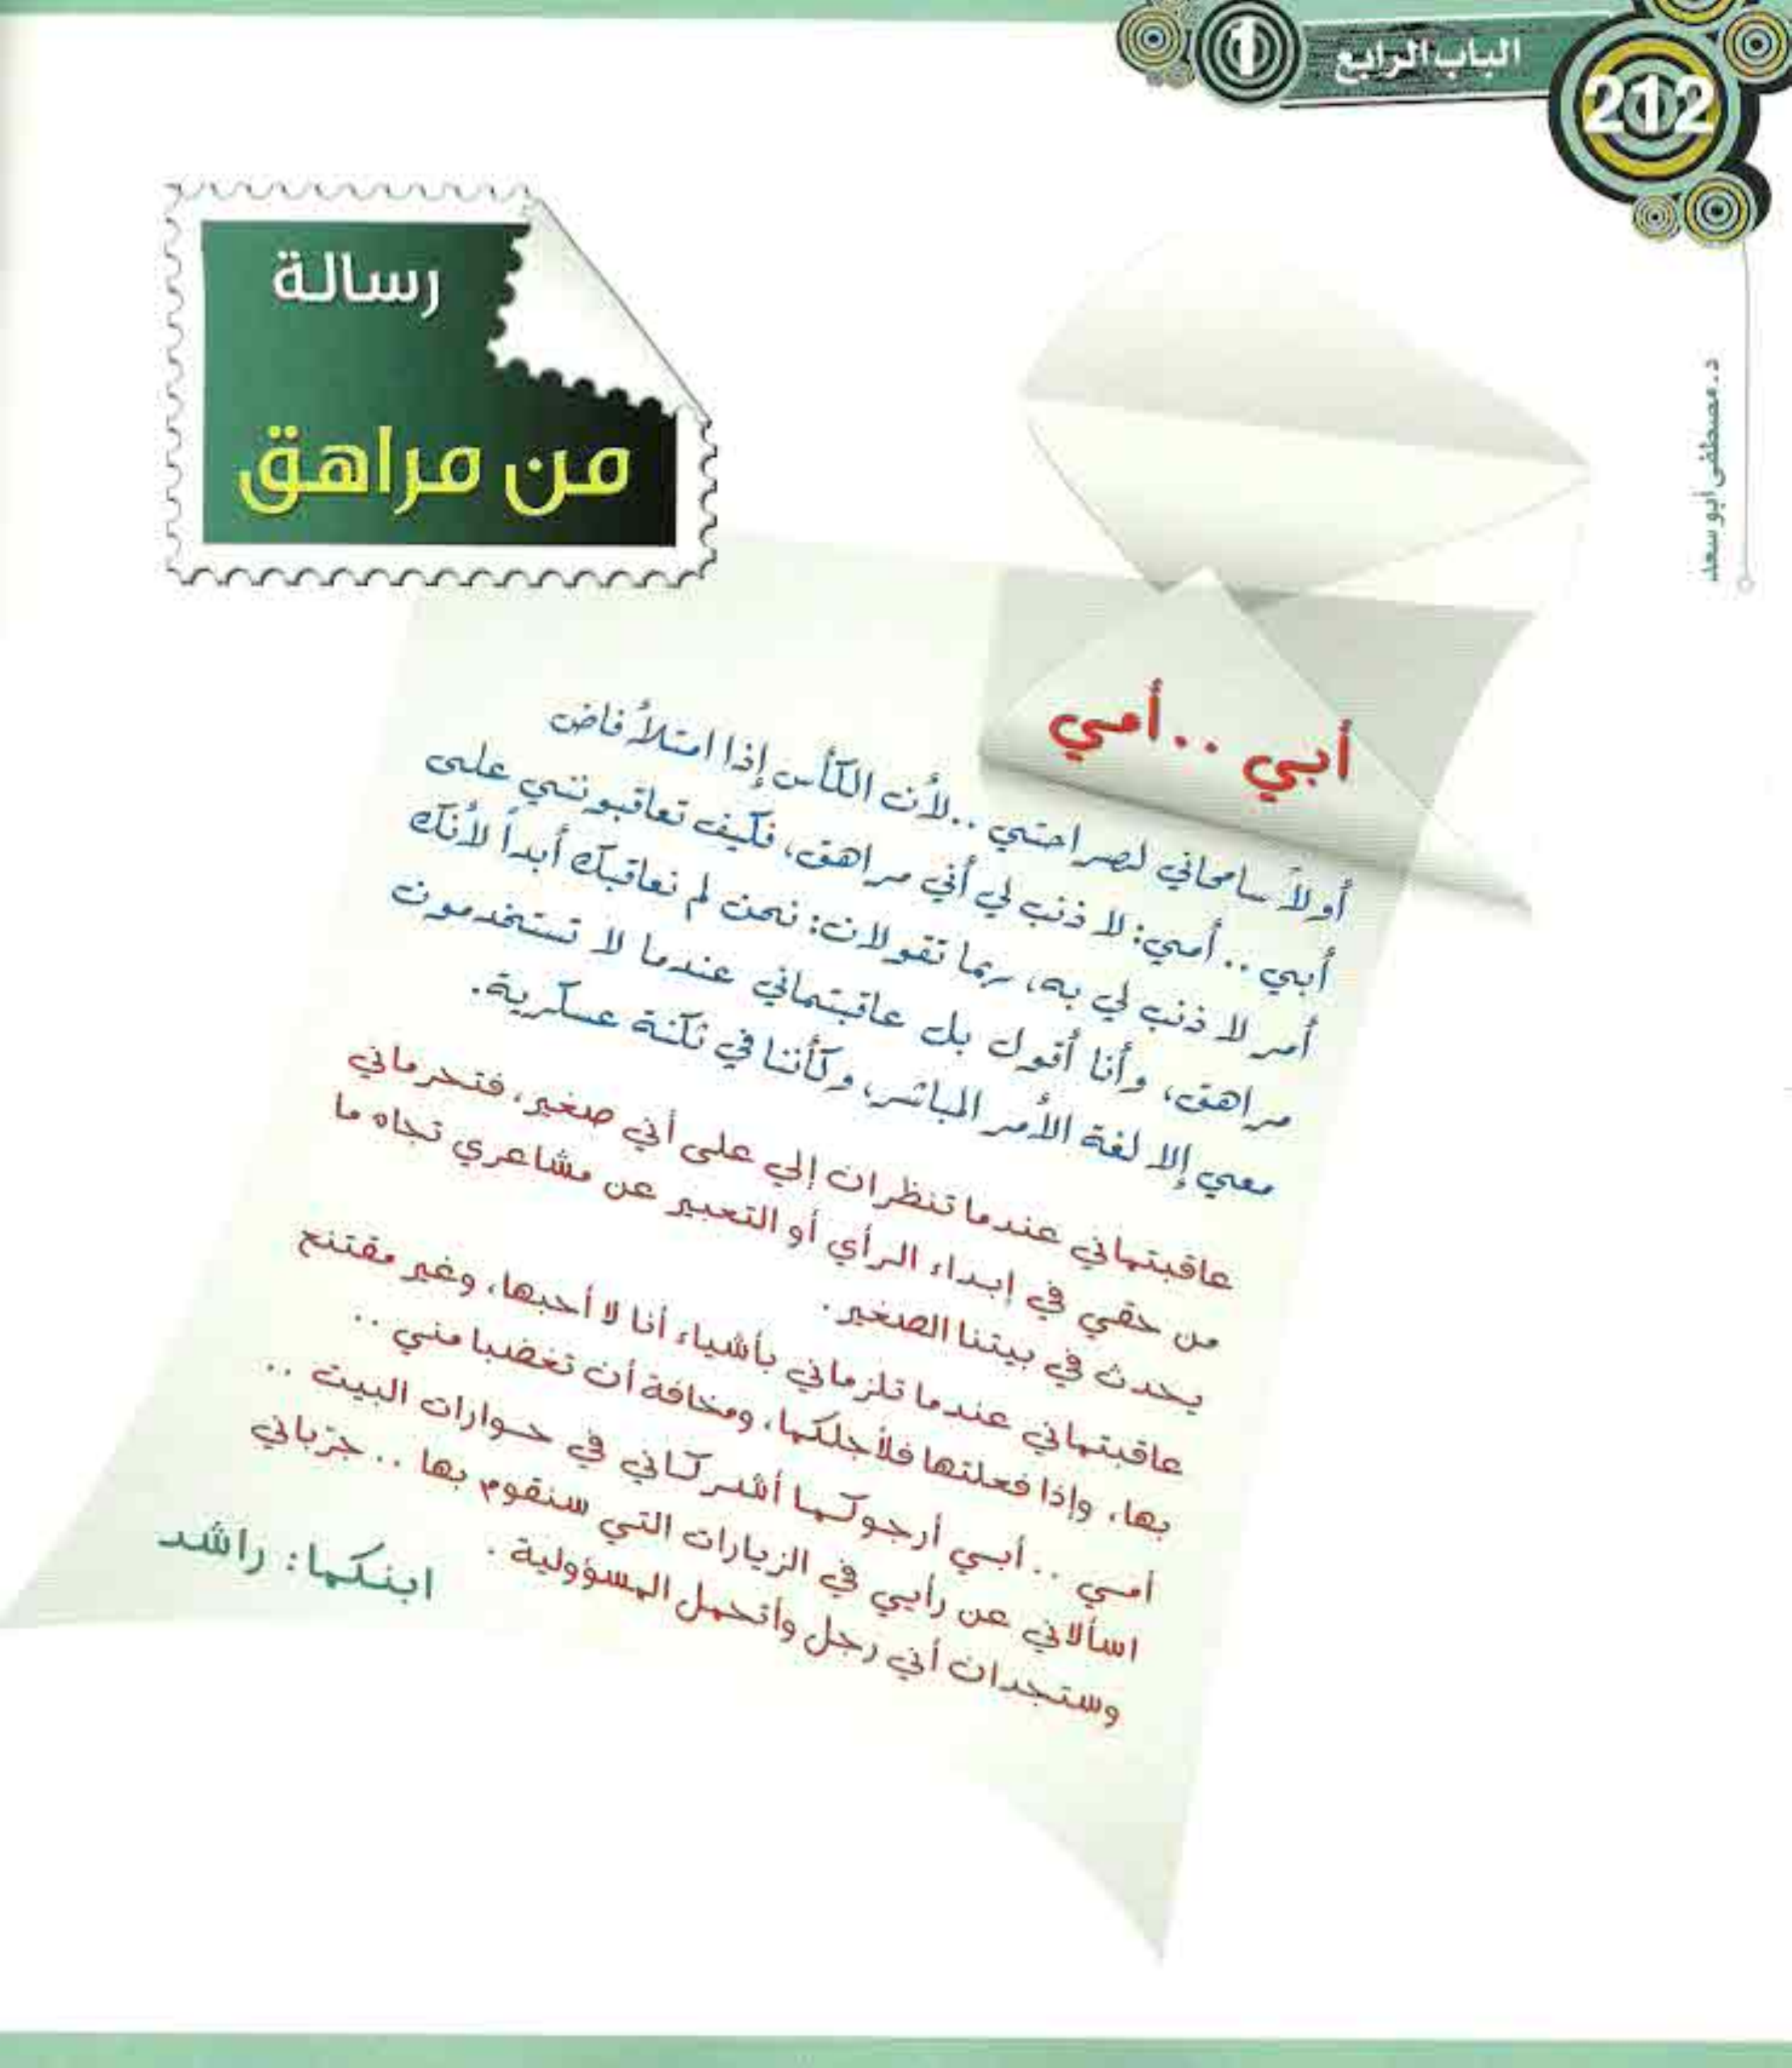 الباب الرابع
1
212
د. مصطفى أبو سعد
رسالة
من مراهق
أبي .. أمي
أولاً سامحاني لصراحتي .. لأن الكأس إذا امتلأ فاض
أبي .. أمي: لا ذنب لي أني مراهق، فكيف تعاقبونني على
أمر لا ذنب لي به، ربما تقولان: نحن لم نعاقبك أبداً لأنك
مراهق، وأنا أقول بل عاقبتماني عندما لا تستخدمون
معي إلا لغة الأمر المباشر، وكأننا في ثكنة عسكرية.
عاقبتماني عندما تنظران إلي على أني صغير، فتحرماني
من حقي في إبداء الرأي أو التعبير عن مشاعري تجاه ما
يحدث في بيتنا الصغير.
عاقبتماني عندما تلزماني بأشياء أنا لا أحبها، وغير مقتنع
بها، وإذا فعلتها فلأجلكما، ومخافة أن تغضبا مني ..
أمي .. أبي أرجوكما أشركاني في حوارات البيت ..
اسألاني عن رأيي في الزيارات التي سنقوم بها .. جرّباني
وستجدان أني رجل وأتحمل المسؤولية .
ابنكما: راشد